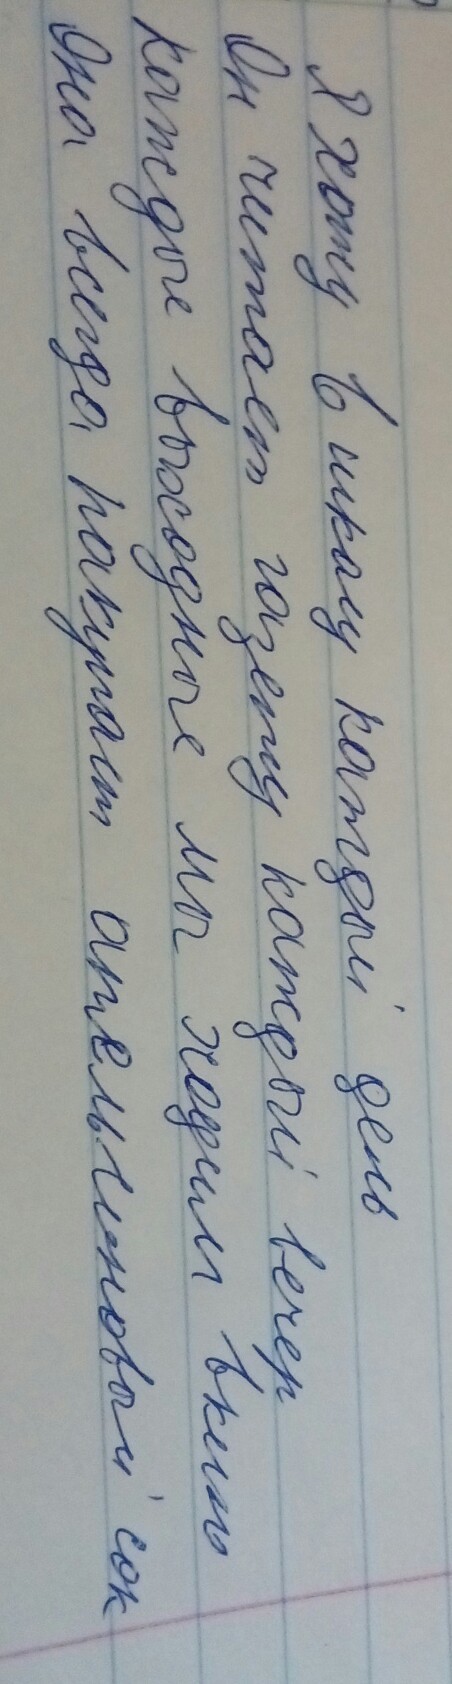 Я хожу в школу каждый день
Он читает газету каждый вечер
Каждые выходные мы ходим в кино
Она всегда покупает апельсиновый сок